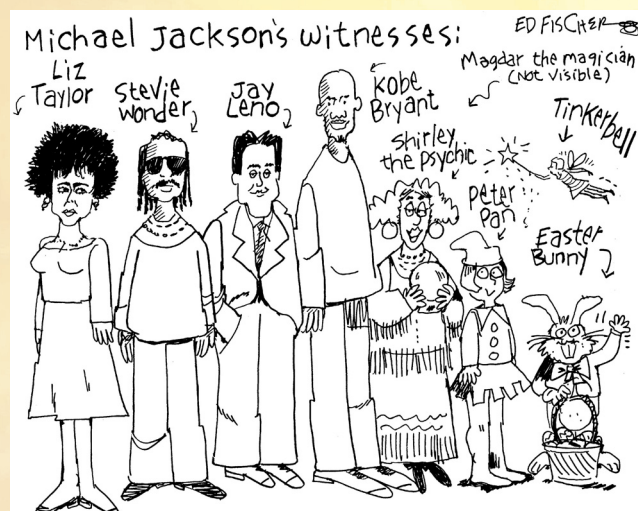 Michael Jackson's witnesses:
ED FISCHER
Liz
Taylor
Stevie
wonder
Jay
Leno
Kobe
Bryant
Magdar the magician
(Not visible)
Shirley
the psychic
Tinkerbell
Peter
Pan
Easter
Bunny